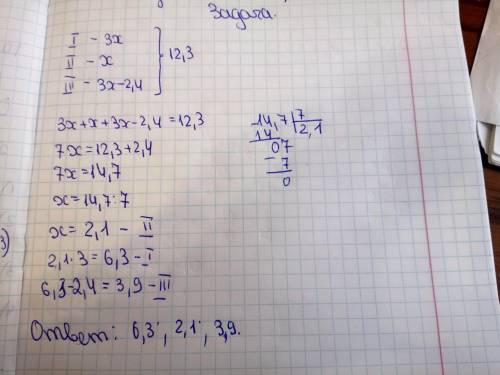 Задача.
I - 3x
II - x
III - 3x-2,4
12,3
3x+x+3x-2,4=12,3
7x=12,3+2,4
7x=14,7
x=14,7:7
x= 2,1 - II
2,1·3=6,3-I
6,3-2,4=3,9-III
14,7 7
14 2,1
07
- 7
0
3)
Ответ: 6,3; 2,1; 3,9.